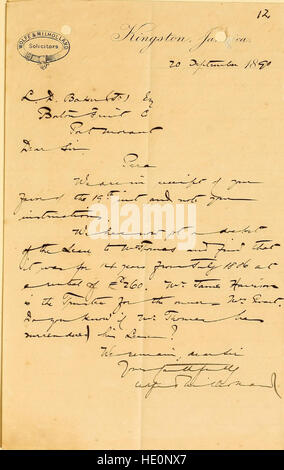 12
WOLFE & MILHOLLAND
Solicitors
Kingston, Jamaica.
20 September 1890
L. D. Baker Esq
Boston Fruit Co
Port Morant
Dear Sir
We are in receipt of your
favor of the 19th inst and note your
instructions.
We have got a
of the Lease to Mr Thomas and find that
it was for 14 years from July 1886 at
a rental of £260. Mr James Harrison
is the Trustee for the owner Mr
Do you know if Mr Thomas has
surrendered his Lease?
We remain, dear Sir
Yours faithfully
alamy stock photo
HE0NX7